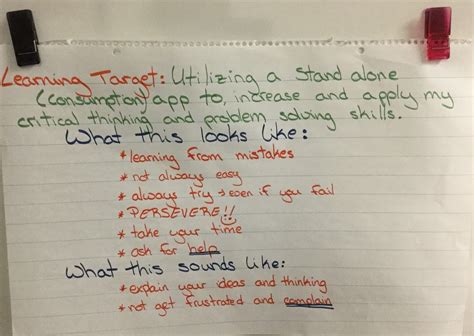 Learning Target: Utilizing a Stand alone
(consumption) app to, increase and apply my
critical thinking and problem solving skills.
What this looks like:
* learning from mistakes
* not always easy
* always try → even if you fail
* PERSEVERE!!
* take your time
* ask for help
What this sounds like:
* explain your ideas and thinking
* not get frustrated and complain